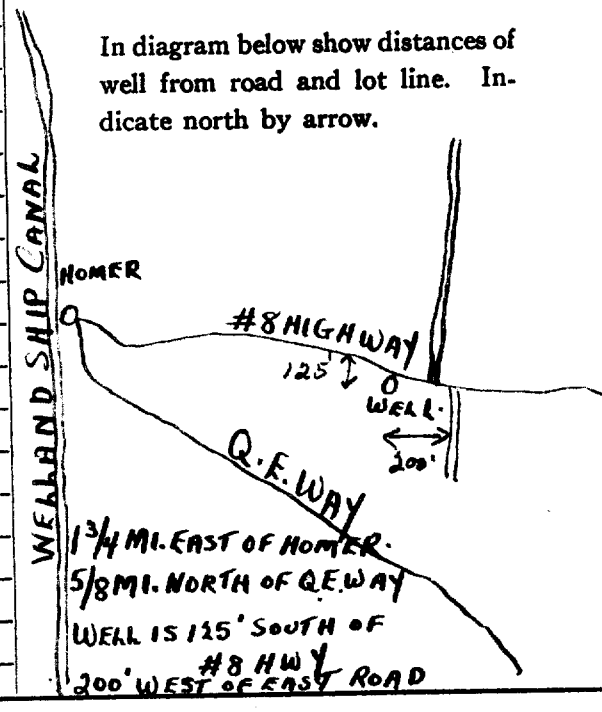 In diagram below show distances of
well from road and lot line. In-
dicate north by arrow.
WELLAND SHIP CANAL
HOMER
#8 HIGHWAY
125'
WELL.
200'
Q.E. WAY
1 3/4 MI. EAST OF HOMER.
5/8 MI. NORTH OF Q.E. WAY
WELL IS 125' SOUTH OF
#8 HWY
200' WEST OF EAST ROAD